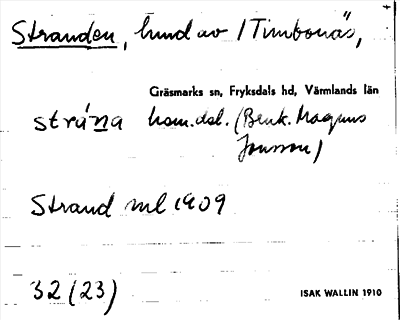 Stranden, hmd av 1 Timbonäs,
Gräsmarks sn, Fryksdals hd, Värmlands län
strána hom.dsl. (Benk. Magnus
Jonsson)
Strand ml 1909
32 (23)
ISAK WALLIN 1910